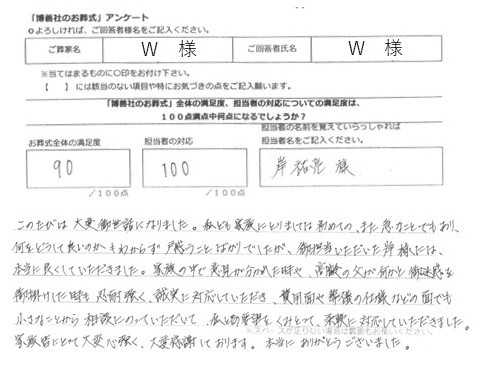 「博善社のお葬式」アンケート
○よろしければ、ご回答者様名をご記入ください。
ご葬家名 W 様 ご回答者氏名 W 様
※当てはまるものに○印をお付け下さい。
【 】には該当のない項目や特にお気づきの点をご記入願います。
「博善社のお葬式」全体の満足度、担当者の対応についての満足度は、
100点満点中何点になるでしょうか?
お葬式全体の満足度 担当者の対応 担当者の名前を覚えていらっしゃれば
担当者名をご記入ください。
90 100 岸 祐亮 様
/100点 /100点
このたびは大変御世話になりました。私ども家族にとりましては初めての、また急なことでもあり、
何をどうして良いのかもわからず戸惑うことばかりでしたが、御担当いただいた岸様には、
本当に良くしていただきました。家族の中で意見が分かれた時や、高齢の父が何かと御迷惑を
御掛けした時も忍耐強く、誠実に対応していただき、費用面や葬儀の仕様などの面でも
小さなことから相談にのっていただいて、私どもの要望をくみとって、柔軟に対応していただきました。
※スペースが足りない場合は裏面もお使いください。
家族皆にとって大変心強く、大変感謝しております。本当にありがとうございました。